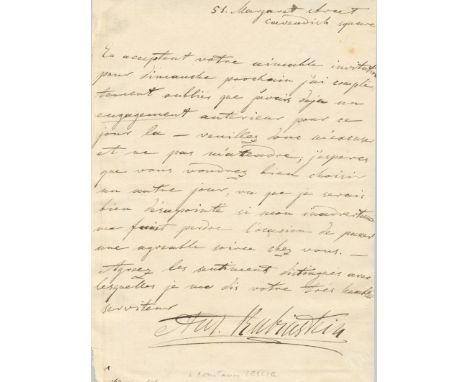 51. Margaret Street
Cavendish square
En acceptant votre aimable invitation
pour Dimanche prochain j'ai complè
tement oublié que j'avais deja un
engagement anterieur pour ce
jour la – veuillez donc m'excuser
et ne pas m'attendre, j'esperes
que vous voudrez bien choisir
un autre jour, vu que je serais
bien désapointé si mon inadvertance
me faisait perdre l'occasion de passer
une agreable soirée chez vous. –
Agreez les sentiments distingués avec
lesquelles je me dis votre très humble
serviteur
Ant. Rubinstein